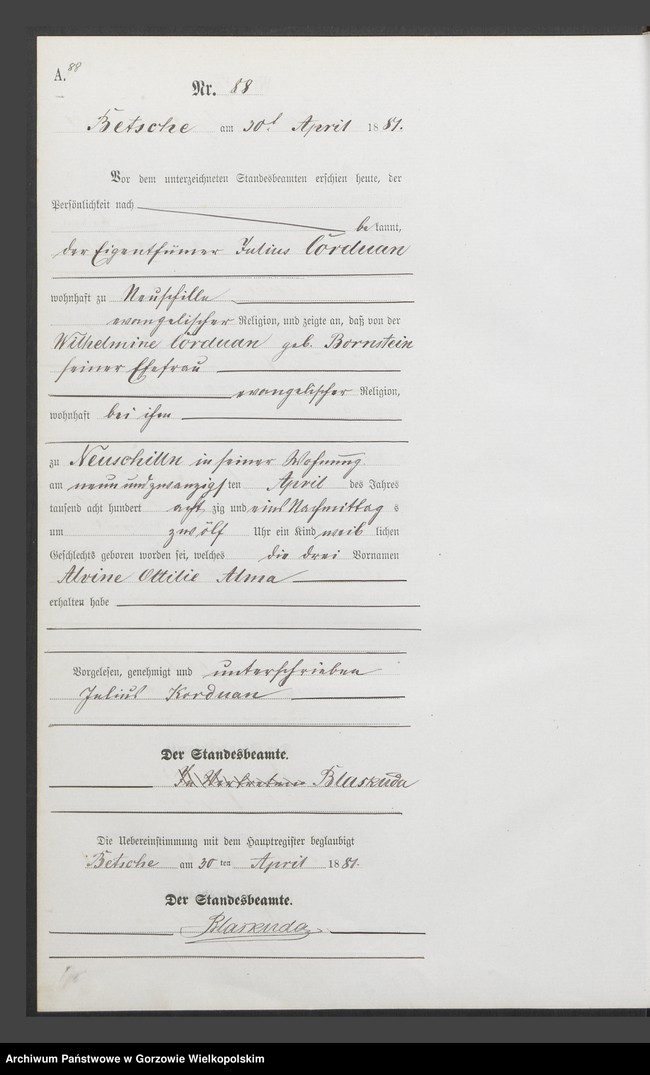 A. 88
Nr. 88
Betsche am 30t April 1881.
Vor dem unterzeichneten Standesbeamten erschien heute, der
Persönlichkeit nach
be kannt,
der Eigenthümer Julius Corduan
wohnhaft zu Neuschilln
evangelischer Religion, und zeigte an, daß von der
Wilhelmine Corduan geb. Bornstein
seiner Ehefrau
evangelischer Religion,
wohnhaft bei ihm
zu Neuschilln in seiner Wohnung
am neun und zwanzigsten April des Jahres
tausend acht hundert acht zig und eins Nachmittag s
um zwölf Uhr ein Kind weib lichen
Geschlechts geboren worden sei, welches die drei Vornamen
Alvine Ottilie Alma
erhalten habe
Vorgelesen, genehmigt und unterschrieben
Julius Korduan
Der Standesbeamte.
In Vertretung Blaskuda
Die Uebereinstimmung mit dem Hauptregister beglaubigt
Betsche am 30 ten April 1881.
Der Standesbeamte.
Blaskuda
Archiwum Państwowe w Gorzowie Wielkopolskim